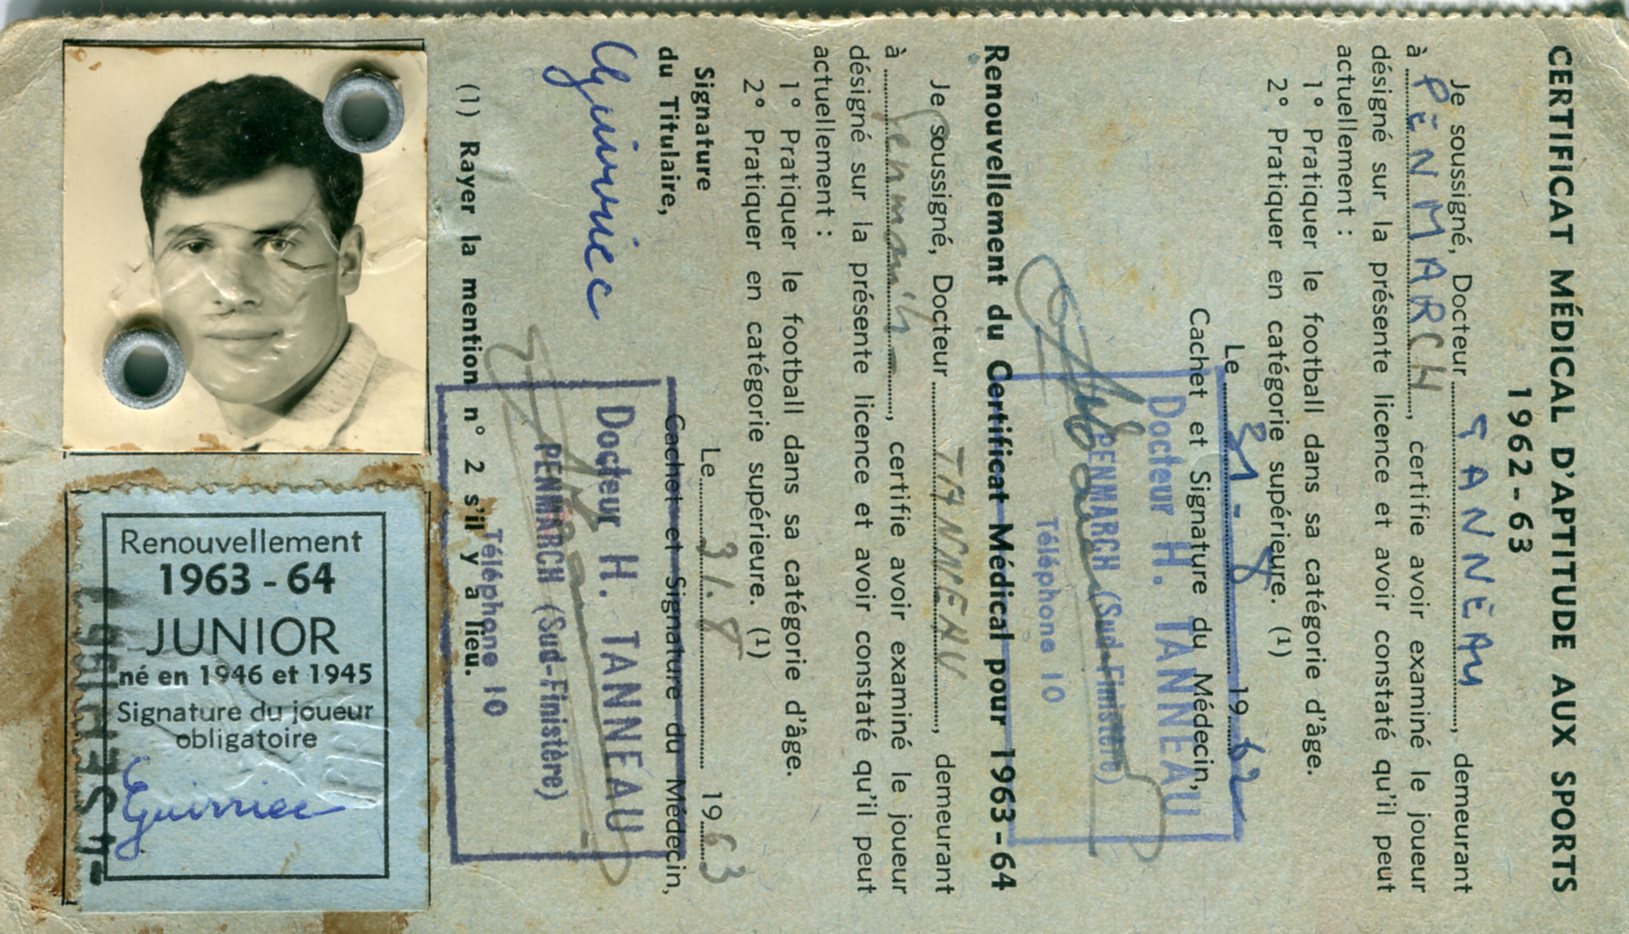 CERTIFICAT MÉDICAL D'APTITUDE AUX SPORTS
1962-63
Je soussigné, Docteur TANNEAU, demeurant
à PENMARCH, certifie avoir examiné le joueur
désigné sur la présente licence et avoir constaté qu'il peut
actuellement :
1° Pratiquer le football dans sa catégorie d'âge.
2° Pratiquer en catégorie supérieure. (1)
Le 31-8 1962
Cachet et Signature du Médecin,
Docteur H. TANNEAU
PENMARCH (Sud-Finistère)
Téléphone 10
Renouvellement du Certificat Médical pour 1963-64
Je soussigné, Docteur TANNEAU, demeurant
à Penmarch, certifie avoir examiné le joueur
désigné sur la présente licence et avoir constaté qu'il peut
actuellement :
1° Pratiquer le football dans sa catégorie d'âge.
2° Pratiquer en catégorie supérieure. (1)
Le 31.8 1963
Signature
du Titulaire,
Cachet et Signature du Médecin,
Guirriec
Docteur H. TANNEAU
PENMARCH (Sud-Finistère)
Téléphone 10
(1) Rayer la mention n° 2 s'il y a lieu.
Renouvellement
1963 - 64
JUNIOR
né en 1946 et 1945
Signature du joueur
obligatoire
Guirriec